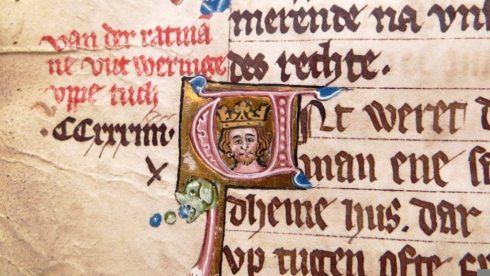 van der ratmā
ne vut weringe
vppe tuch
.CCxxxiiii.
merende na
des rechte.
UNt weret
man ene
dheme hus. dar
vp tugen ofte